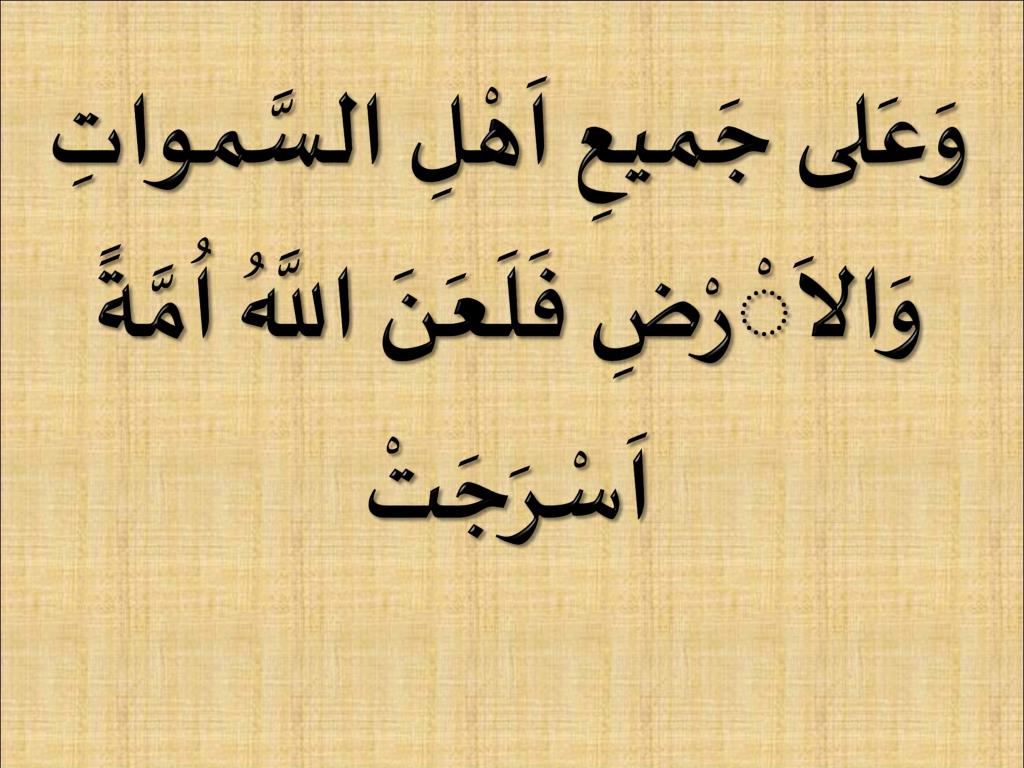 وَعَلى جَميعِ اَهْلِ السَّمواتِ
وَالاَْرْضِ فَلَعَنَ اللَّهُ اُمَّةً
اَسْرَجَتْ